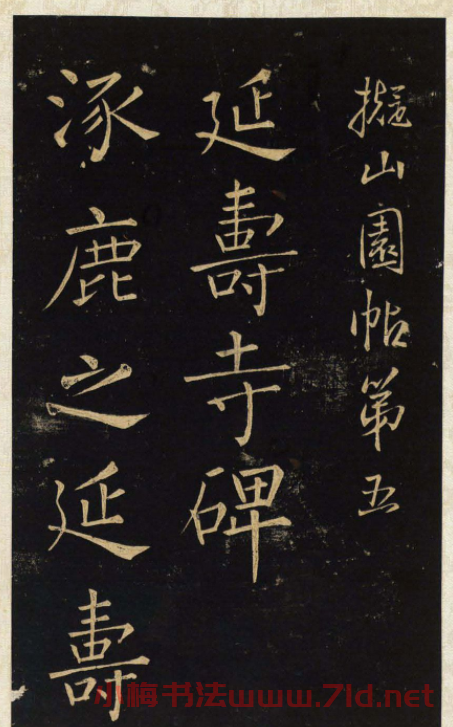 擬山園帖第五
延壽寺碑
涿鹿之延壽
小梅书法www.7ld.net